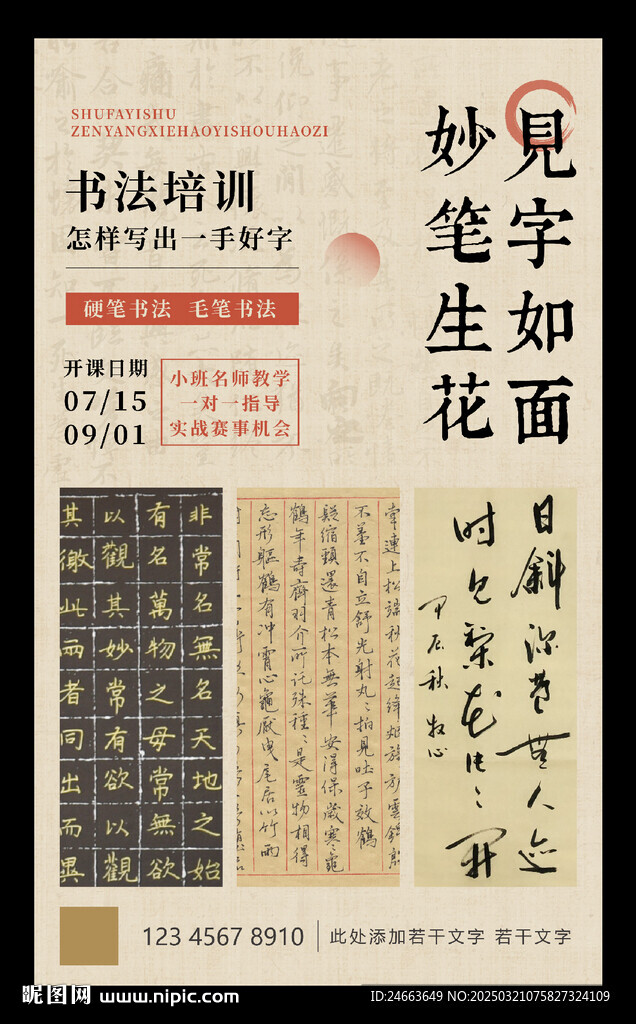 SHUFAYISHU
ZENYANGXIEHAOYISHOUHAOZI
书法培训
怎样写出一手好字
硬笔书法 毛笔书法
开课日期
07/15
09/01
小班名师教学
一对一指导
实战赛事机会
見字如面
妙笔生花
非常名無名天地之始
有名萬物之母常無欲
以觀其妙常有欲以觀
其徼此兩者同出而異
鶴年壽齊羽介所託殊種〻是靈物相得
忘形軀鶴有冲霄心龜厭曳尾居以竹兩
日斜深巷無人迹
时见梨花片〻开
甲辰秋 牧心
123 4567 8910
此处添加若干文字 若干文字
昵图网 www.nipic.com
ID:24663649 NO:20250321075827324109